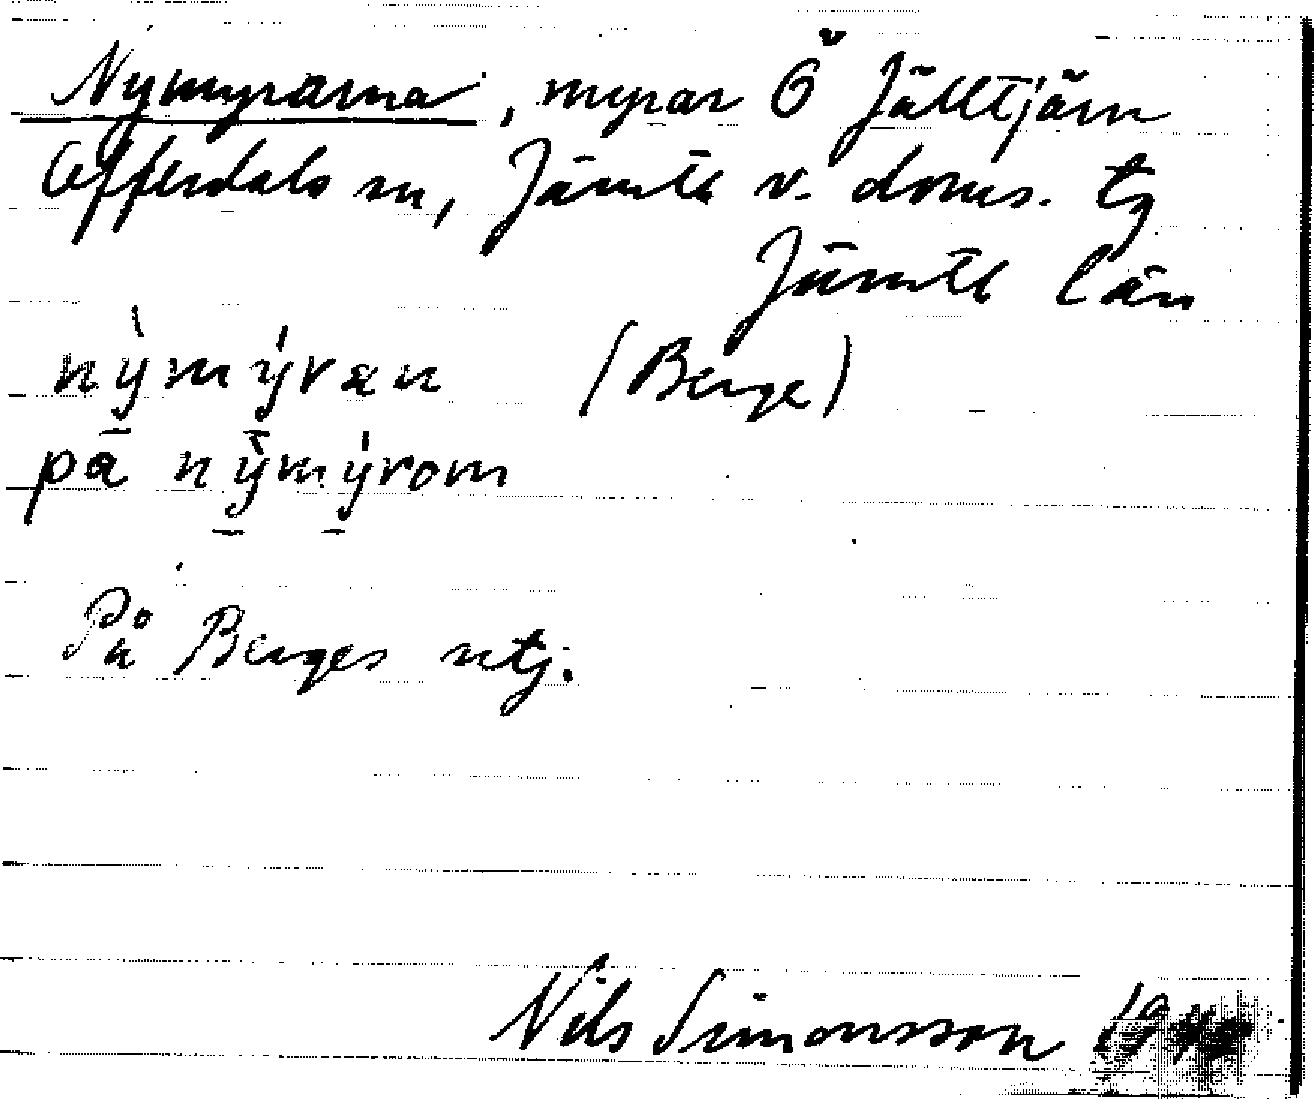 Nymyrarna, myrar Ö Jälltjärn
Offerdals sn, Jämtl v. doms. tg
Jämtl län
nỳmýran (Berge)
på nỳmýrom
På Berges utj.
Nils Simonsson